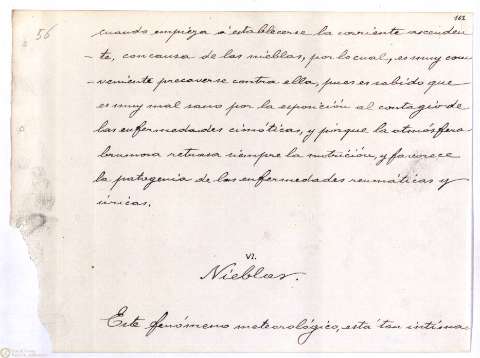 162
56
cuando empieza á establecerse la corriente ascenden
-te, con causa de las nieblas, por lo cual, es muy con
-veniente precaverse contra ella, pues es sabido que
es muy mal sano por la esposición al contagio de
las enfermedades cimóticas, y porque la atmósfera
brumosa retrasa siempre la nutrición, y favorece
la patogenia de las enfermedades reumáticas y
úricas.
VI.
Nieblas.
Este fenómeno meteorológico, está tan íntima-